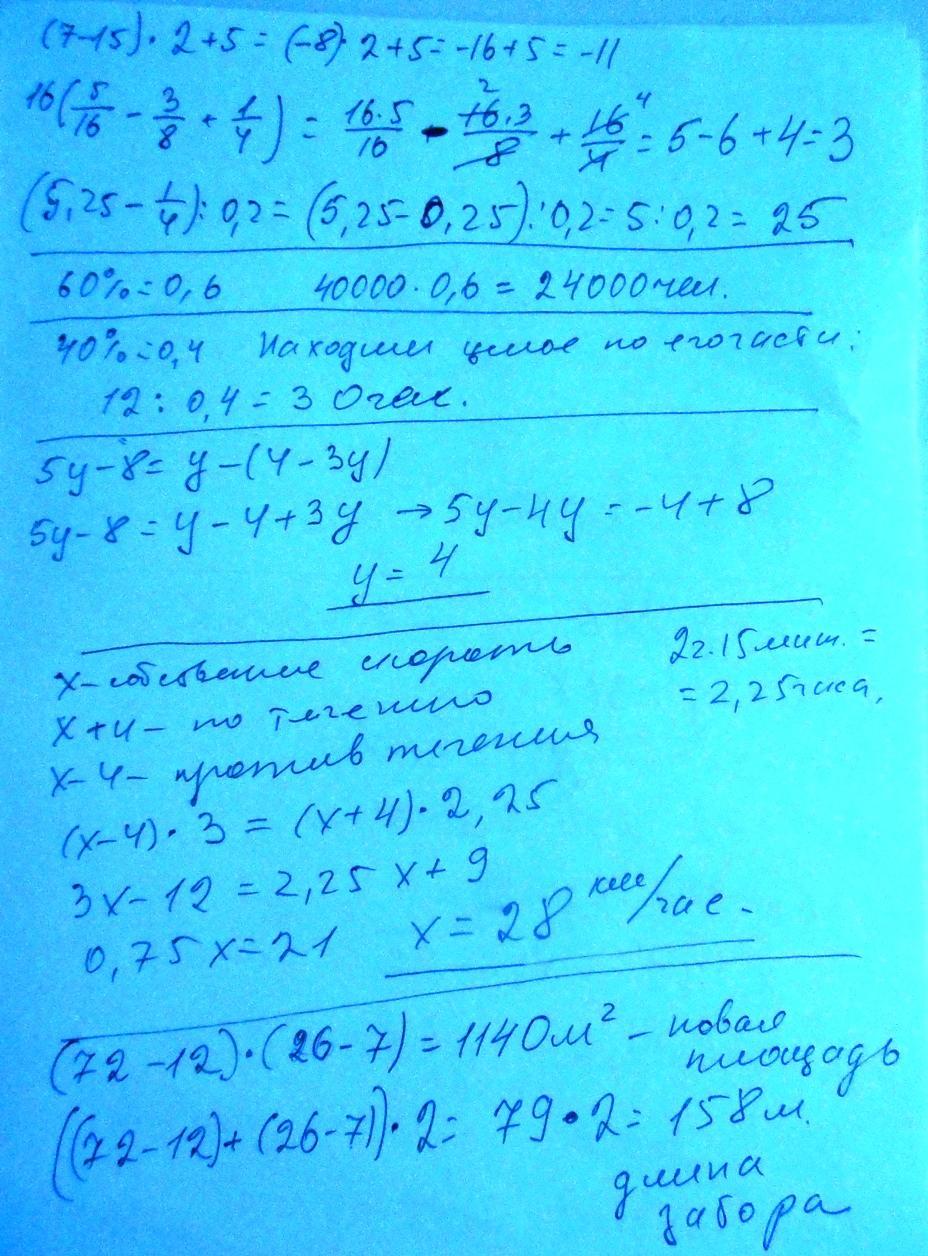 (7-15)·2+5=(-8)·2+5=-16+5=-11
16(5/16 - 3/8 + 1/4) = 16·5/16 - 16·3/8 2 + 16/4 4 = 5-6+4=3
(5,25-1/4):0,2=(5,25-0,25):0,2=5:0,2=25
60%=0,6 40000·0,6=24000чел.
40%=0,4 Находим целое по его части:
12:0,4=30 чел.
5y-8=y-(4-3y)
5y-8=y-4+3y →5y-4y=-4+8
y=4
x-собственные скорость 2г.15мин.=
x+4-по течению =2,25часа,
x-4-против течения
(x-4)·3=(x+4)·2,25
3x-12=2,25x+9
0,75x=21 x=28 км/час.
(72-12)·(26-7)=1140м² - новая
площадь
((72-12)+(26-7))·2=79·2=158м.
длина
забора